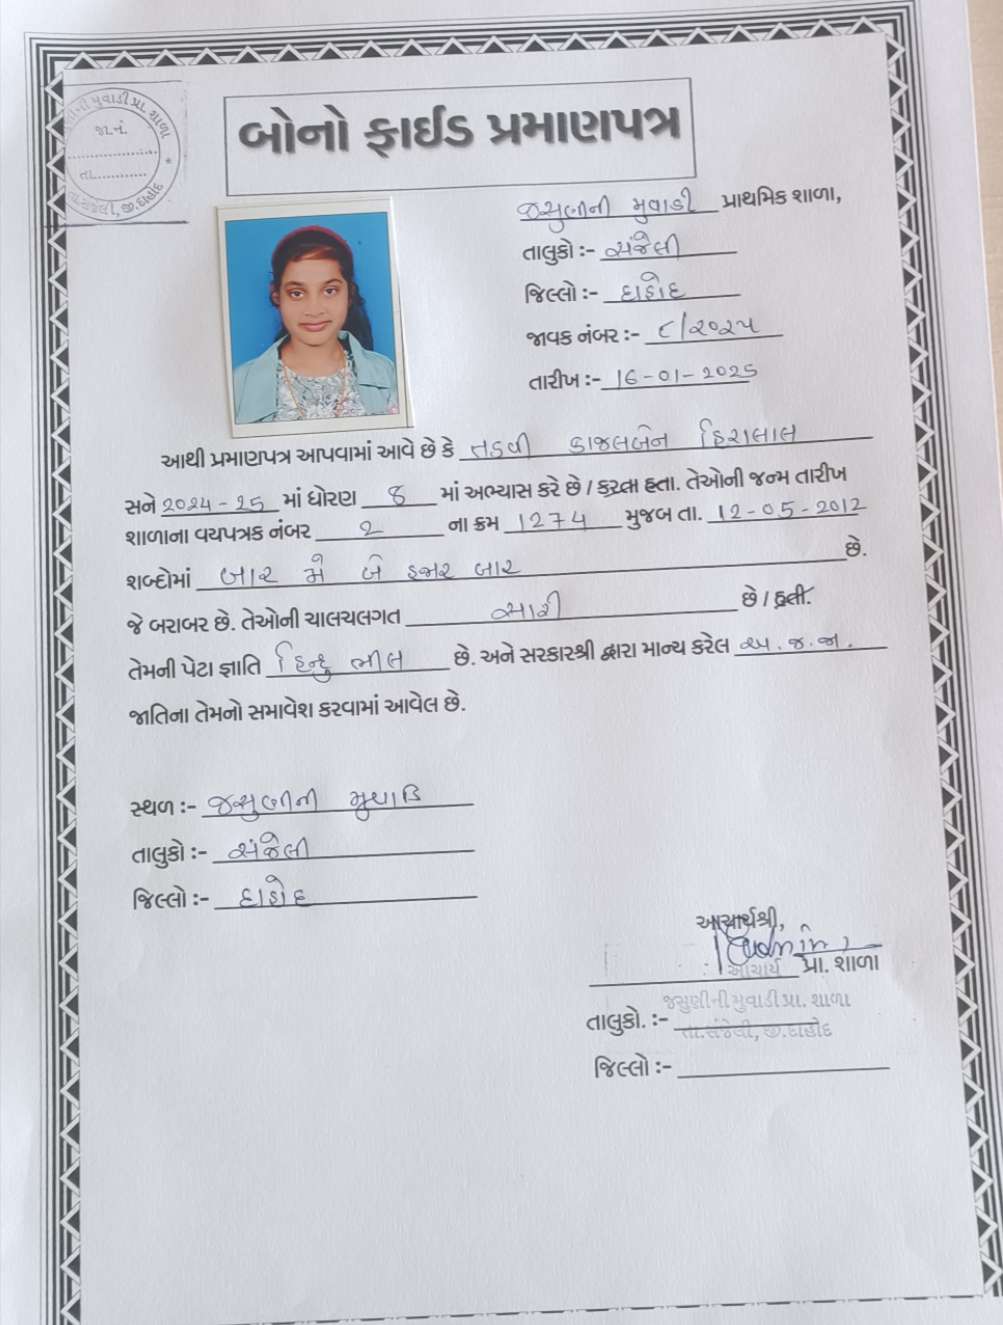 જા.નં.
તા.
તા.સંજેલી, જી.દાહોદ
બોનો ફાઈડ પ્રમાણપત્ર
જસુણીની મુવાડી પ્રાથમિક શાળા,
તાલુકો :- સંજેલી
જિલ્લો :- દાહોદ
જાવક નંબર :- ૮/૨૦૨૫
તારીખ :- 16-01-2025
આથી પ્રમાણપત્ર આપવામાં આવે છે કે તડવી કાજલબેન હિરાલાલ
સને ૨૦૨૪-૨૫ માં ધોરણ 8 માં અભ્યાસ કરે છે / કરતા હતા. તેઓની જન્મ તારીખ
શાળાના વયપત્રક નંબર 2 ના ક્રમ 1274 મુજબ તા. 12-05-2012
શબ્દોમાં બાર મે બે હજાર બાર છે.
જે બરાબર છે. તેઓની ચાલચલગત સારી છે / હતી.
તેમની પેટા જ્ઞાતિ હિન્દુ ભીલ છે. અને સરકારશ્રી દ્વારા માન્ય કરેલ અ.જ.જા.
જાતિના તેમનો સમાવેશ કરવામાં આવેલ છે.
સ્થળ :- જસુણીની મુવાડિ
તાલુકો :- સંજેલી
જિલ્લો :- દાહોદ
આચાર્યશ્રી,
આચાર્ય પ્રા. શાળા
જસુણીની મુવાડી પ્રા. શાળા
તાલુકો. :- તા.સંજેલી, જી.દાહોદ
જિલ્લો :-